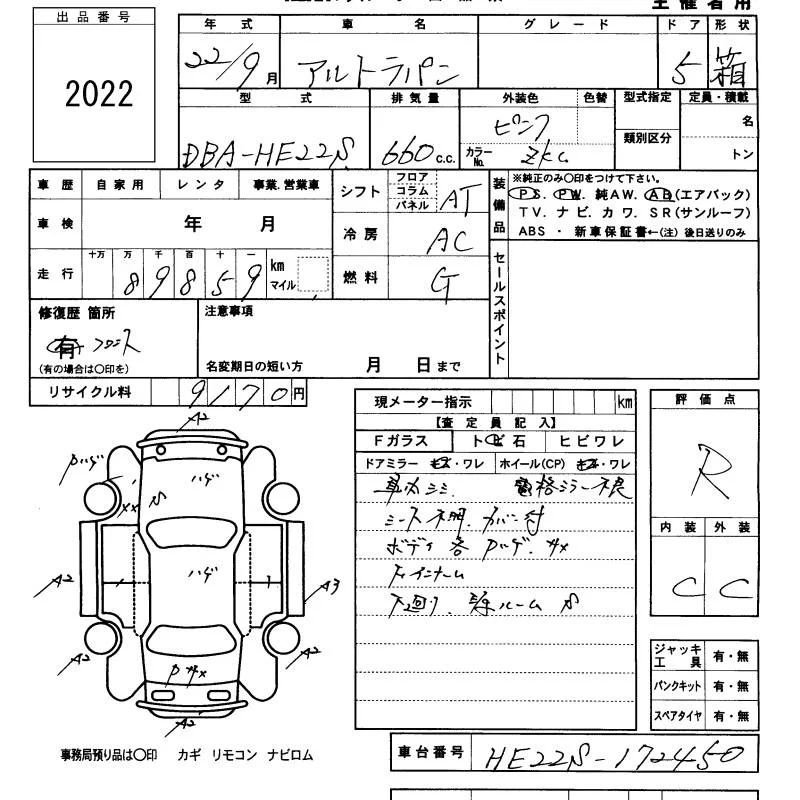 主催者用
出品番号
2022
年式 車名 グレード ドア 形状
22/9月 アルトラパン 5 箱
型式 排気量 外装色 色替 型式指定 定員・積載
DBA-HE22S 660c.c. ピンク 類別区分 名
カラーNo. ZKC トン
車歴 自家用 レンタ 事業.営業車
車検 年 月
走行 十万 万 千 百 十 一 km マイル
89859
シフト フロア コラム パネル AT
冷房 AC
燃料 G
装備品 ※純正のみ○印をつけて下さい。
PS. PW. 純AW. AB(エアバック)
TV. ナビ. カワ. SR(サンルーフ)
ABS ・ 新車保証書←(注) 後日送りのみ
セールスポイント
修復歴 箇所
有 フロント
(有の場合は○印を)
注意事項
名変期日の短い方 月 日まで
リサイクル料 9170円
現メーター指示 km
【査定員記入】
Fガラス トビ石 ヒビワレ
ドアミラー キズ・ワレ ホイール(CP) キズ・ワレ
車内シミ 格ミラー不良
シート カバー付
ボディ各 Pハゲ. サメ
下廻り. ルーム S
評価点
R
内装 外装
C C
ジャッキ 工具 有・無
パンクキット 有・無
スペアタイヤ 有・無
A2
Pハゲ
ハゲ
S
ハゲ
A2
A3
A2
A2
A2
P サメ
事務局預り品は○印 カギ リモコン ナビロム
車台番号 HE22S-172450